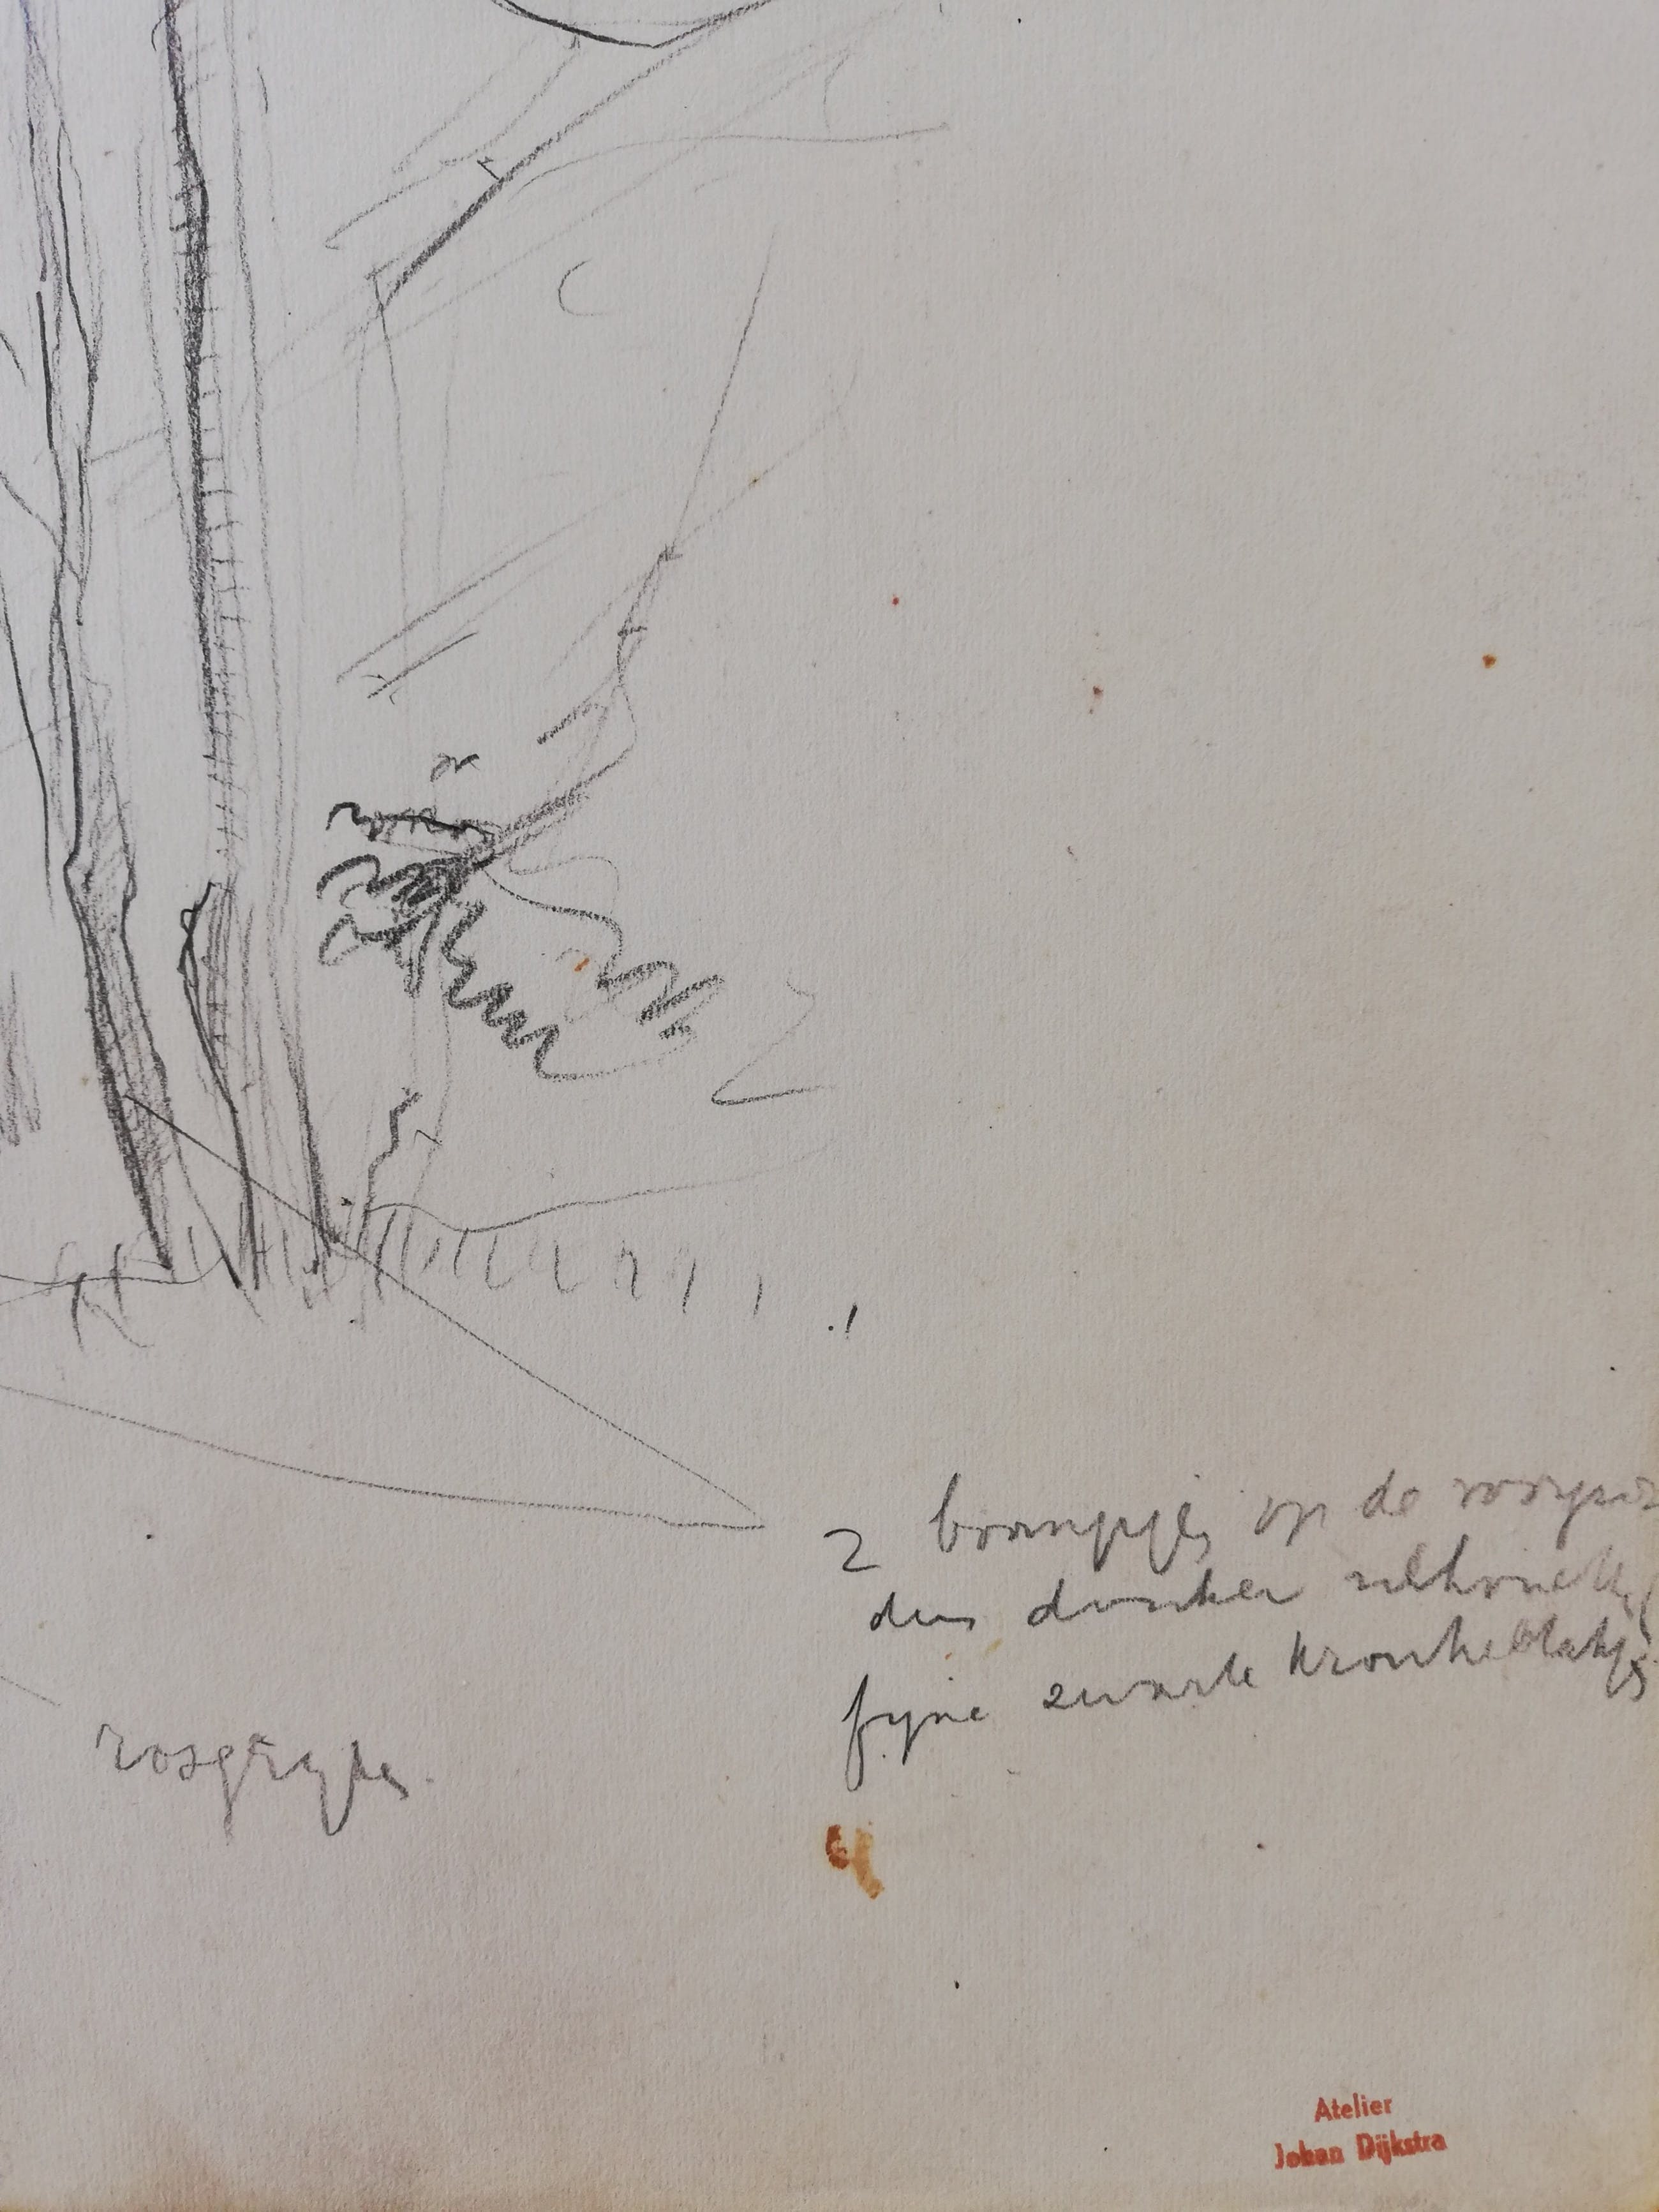 2 boompjes op de voorgro
dus donker silhouet
fijne zwarte kronkeltakjes
rosgrijze
Atelier
Johan Dijkstra